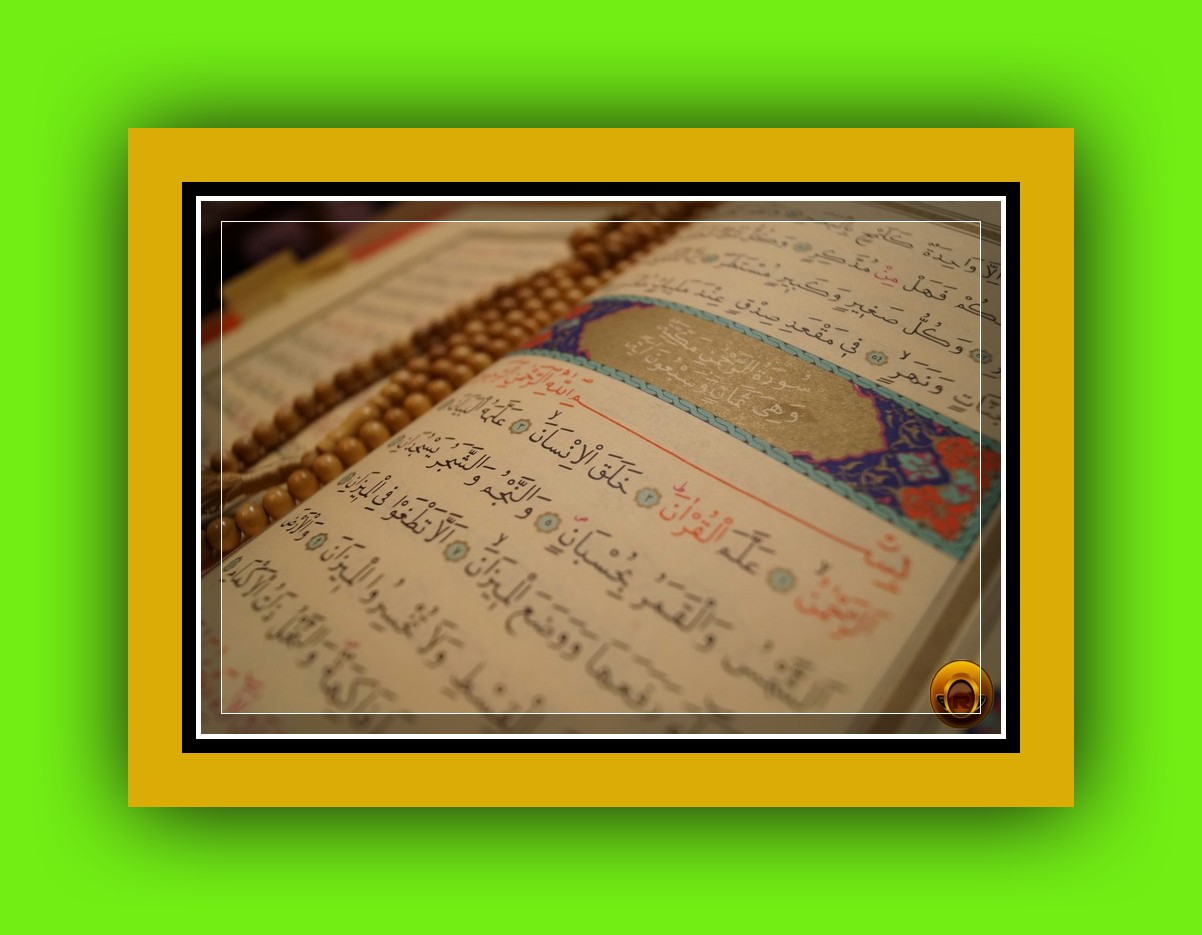 اِلَّا وَاحِدَةٌ كَلَمْحٍ بِالْبَصَرِ
فَهَلْ مِنْ مُدَّكِرٍ وَكُلُّ
وَكُلُّ صَغٖيرٍ وَكَبٖيرٍ مُسْتَطَرٌ
وَنَهَرٍ ٥٤ فٖي مَقْعَدِ صِدْقٍ عِنْدَ مَلٖيكٍ
سورة الرحمن مكية
وهي ثمان وسبعون آية
بِسْمِ اللّٰهِ الرَّحْمٰنِ الرَّحٖيمِ
اَلرَّحْمٰنُ ١ عَلَّمَ الْقُرْاٰنَ ٢ خَلَقَ الْاِنْسَانَ ٣ عَلَّمَهُ الْبَيَانَ
اَلشَّمْسُ وَالْقَمَرُ بِحُسْبَانٍ ٥ وَالنَّجْمُ وَالشَّجَرُ يَسْجُدَانِ
رَفَعَهَا وَوَضَعَ الْمٖيزَانَ ٧ اَلَّا تَطْغَوْا فِي الْمٖيزَانِ
بِالْقِسْطِ وَلَا تُخْسِرُوا الْمٖيزَانَ ٩ وَالْاَرْضَ
فَاكِهَةٌ وَالنَّخْلُ ذَاتُ الْاَكْمَامِ